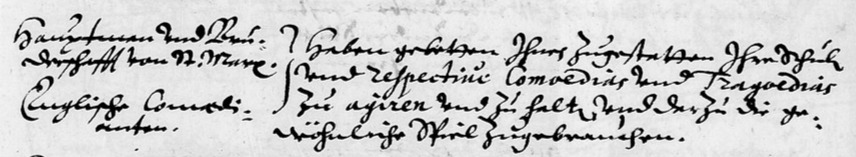 Hauptmen vnd Bru-
derschafft von St. Marx.
Englische Comedi-
anten.
Haben gebetten Ihnes Zugestatten Ihre Schul
vnd respectiue Comoedias vnd Tragoedias
zu agiren vnd zu halt, vnd derzu die ge-
wöhnliche Spiel Zugebrauchen.